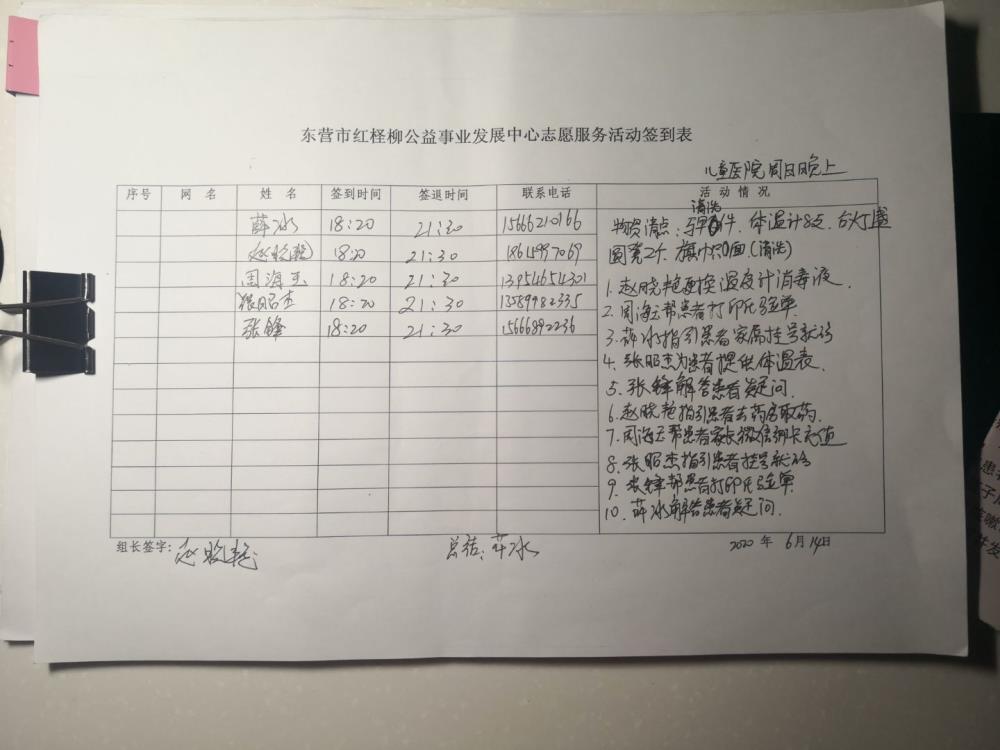 东营市红柽柳公益事业发展中心志愿服务活动签到表
儿童医院 周日晚上
序号 网名 姓名 签到时间 签退时间 联系电话 活动情况
薛冰 18:20 21:30 15666210166
赵晓艳 18:20 21:30 18614997069
周海玉 18:20 21:30 13954654301
张昭杰 18:20 21:30 13589982335
张锋 18:20 21:30 15666892236
清洗
物资清点:马甲 件、体温计8支、台灯1盏
圆凳2个、旗帜 面(清洗)
1、赵晓艳配控温度计消毒液、
2、周海玉帮患者打印化验单、
3、薛冰指引患者家属挂号就诊
4、张昭杰为患者提供体温表、
5、张锋解答患者疑问、
6、赵晓艳指引患者去药房取药、
7、周海玉帮患者家长微信绑卡充值
8、张昭杰指引患者挂号就诊
9、张锋帮患者打印化验单
10、薛冰解答患者疑问、
组长签字:赵晓艳 总结:薛冰 2020年 6月14日